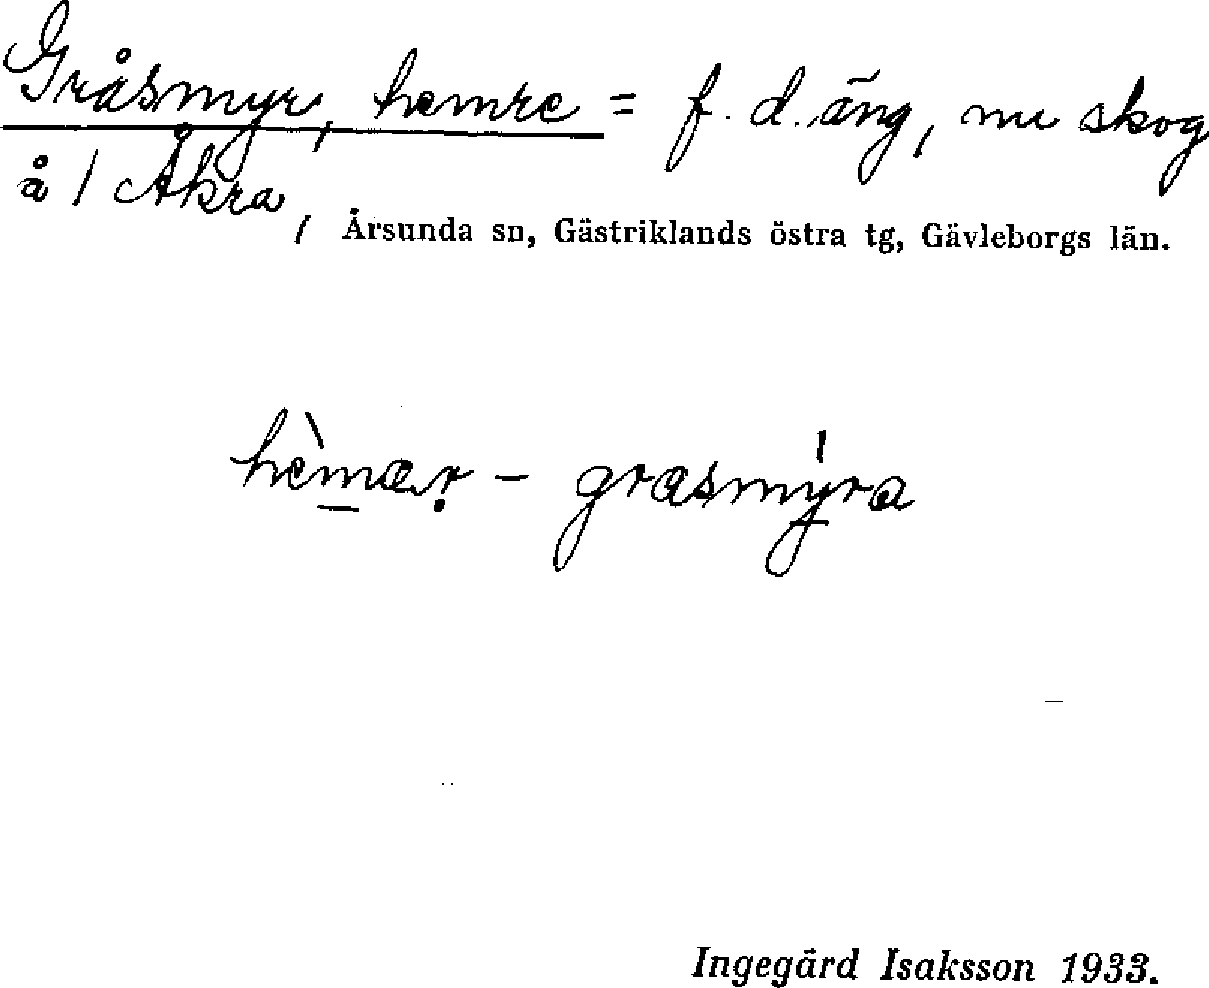 Gråsmyr, hemre = f. d. äng, nu skog
å 1 Åkra,
Årsunda sn, Gästriklands östra tg, Gävleborgs län.
hèmær – grasmýra
Ingegärd Isaksson 1933.